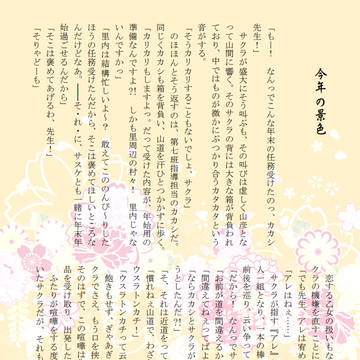 今年の景色
「もー!　なんってこんな年末の任務受けたのっ、カカシ
先生!」
　サクラが盛大にそう叫ぶも、その叫びは虚しく山彦とな
って山間に響く。そのサクラの背には大きな箱が背負われ
ており、中ではものが微かにぶつかり合うカタカタという
音がする。
「そうカリカリすることもないでしょ、サクラ」
　のほほんとそう返すのは、第七班指導担当のカカシだ。
同じくカカシも箱を背負い、山道を汗ひとつかかずに歩く。
「カリカリもしますよっ。だって受けた内容が、年始用の
準備なんですよ?!　しかも里周辺の村々!　里内じゃな
いんですかっ」
「里内は結構忙しいよ～?　敢えてこののんびりした
ほうの任務受けたんだから、そこは褒めてほしいところな
んだけどなあ。――そ・れ・に、サスケとも一緒に年末年
始過ごせるんだから」
「そこは褒めてあげるわ、先生!」
「そりゃどーも」
恋する乙女の扱いな
クラの機嫌を直すこと
「でも先生、アレは宥め
「アレはねぇ……」
　サクラが指す『アレ』
人一組となり、一本の棒
前後を巡り云い争って
「だから!　なんでサ
お前が道を間違える
間違えてねえってばよ
「ならカカシとサクラが
うとしたんだ?!」
「そ、それは近道をって
慣れねえ山道で、わざ
「ウスラトンカチ!」
「ウスラトンカチって云
飽きもせず、ぎゃあぎ
クラでさえ、もう口を挟
そのはずで、この喧嘩
品を受け取り、出発した
ふたりが喧嘩をする度
いたサクラだが、それも